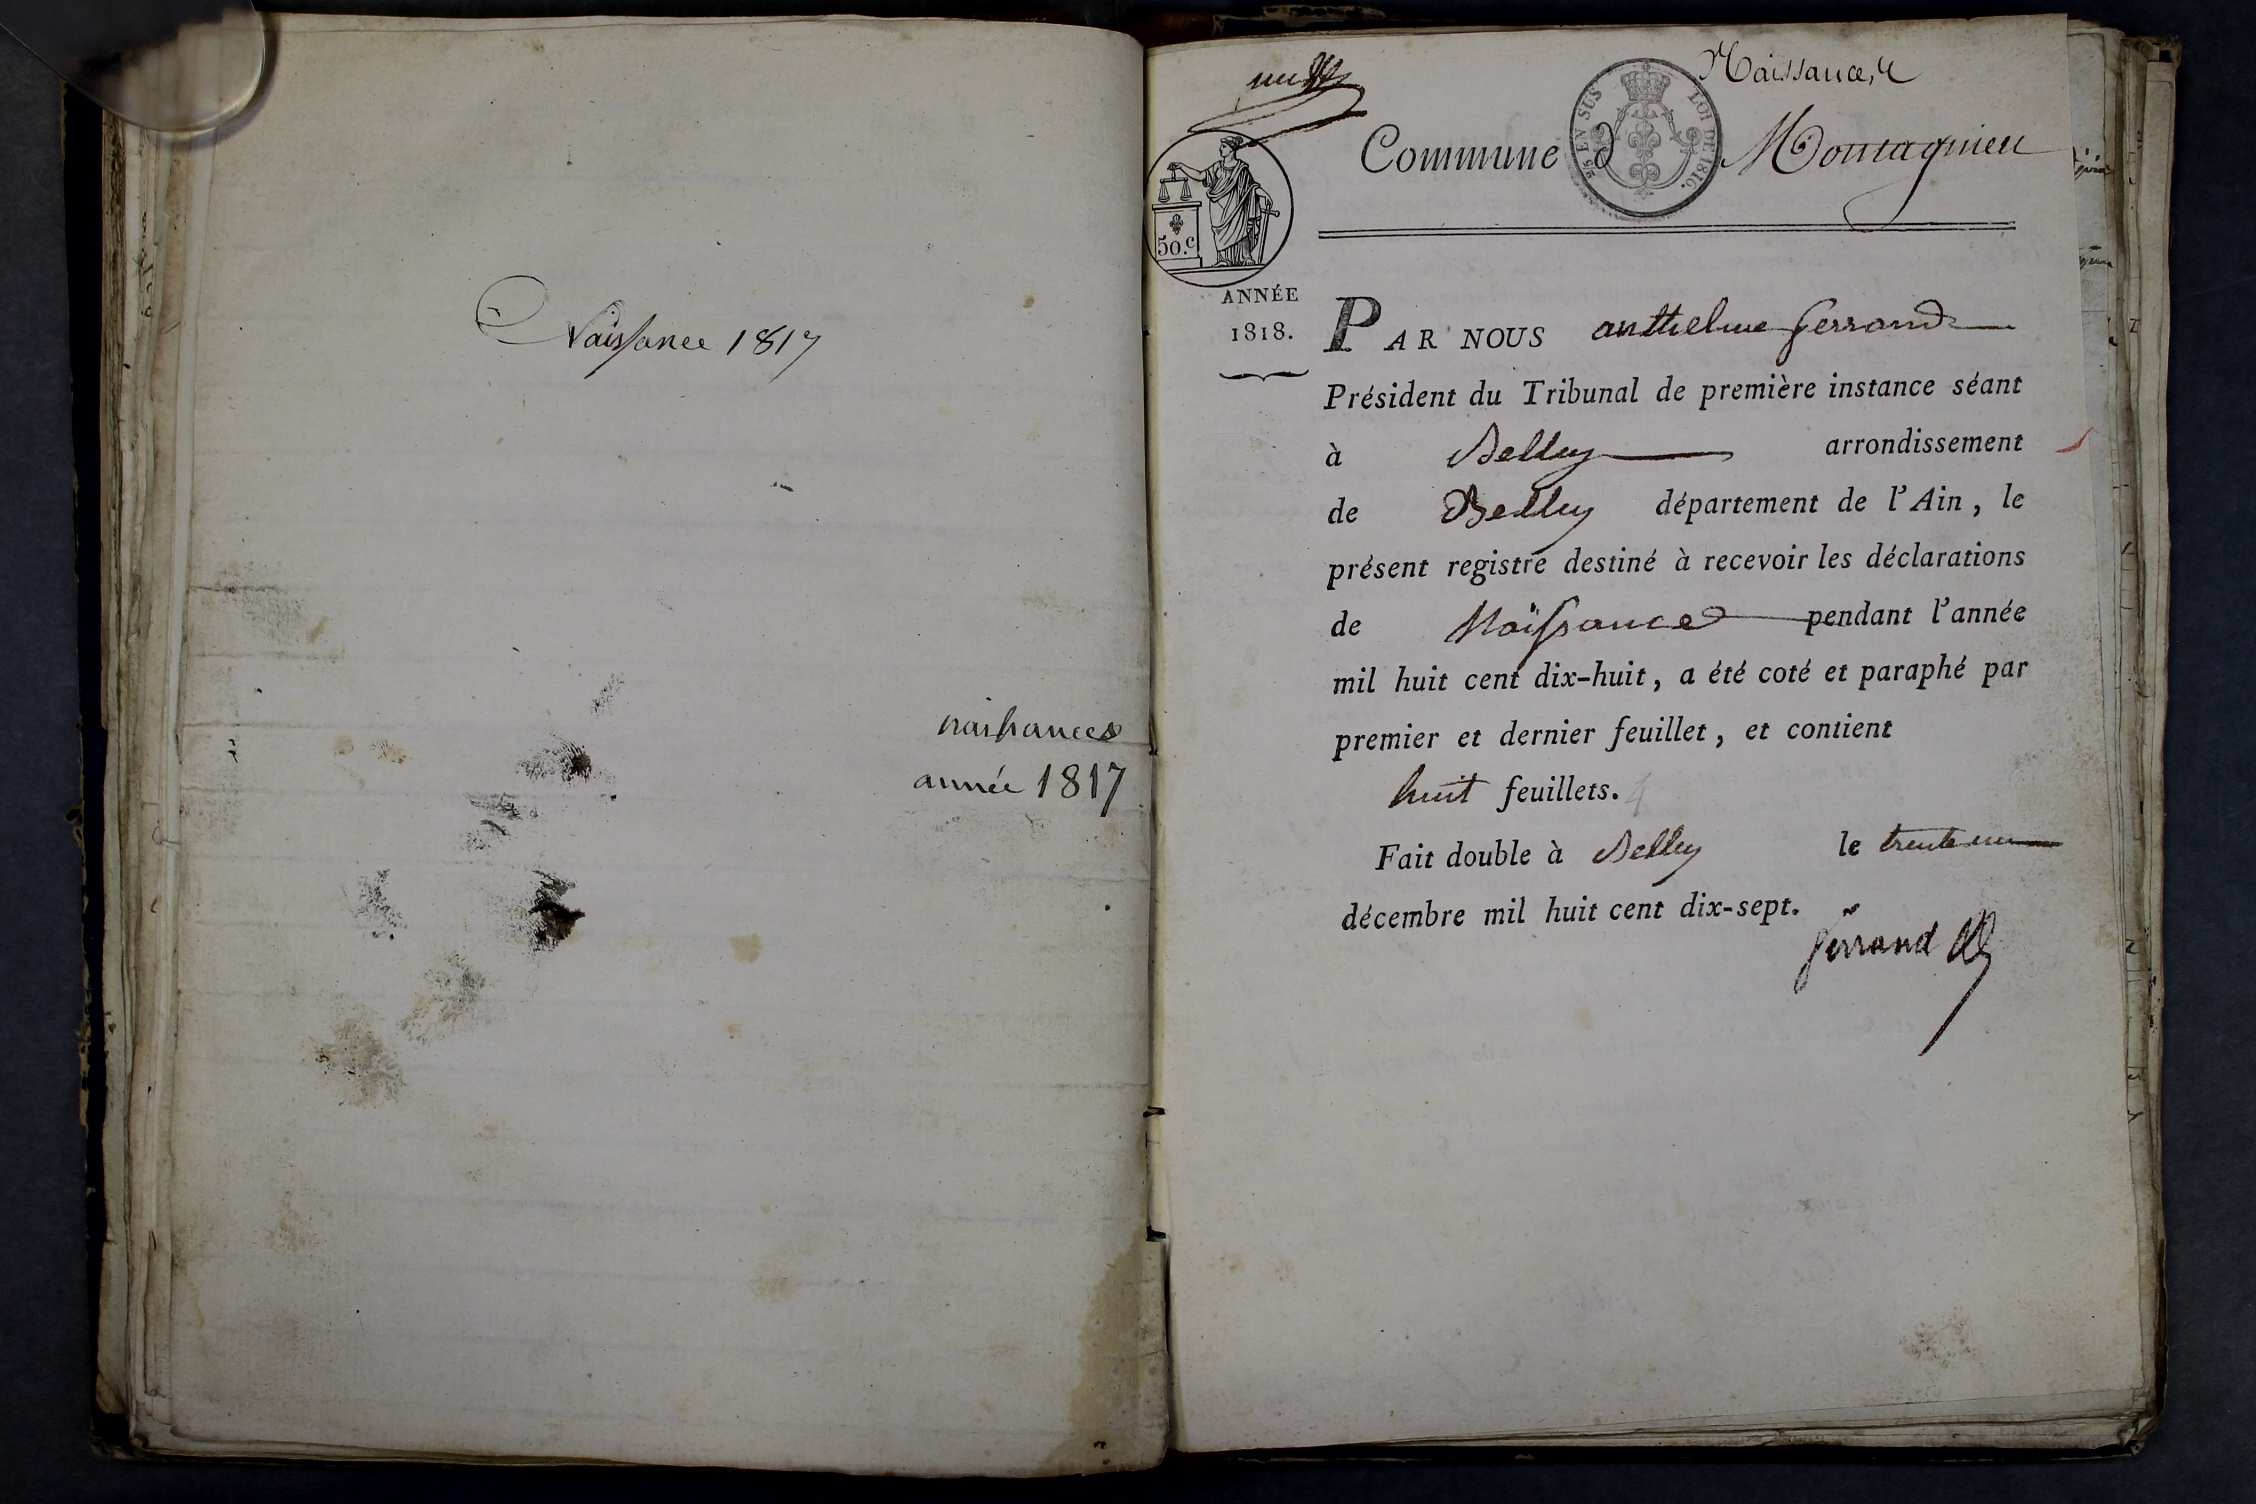 Naissance 1817
naissances
année 1817
Naissances
Commune d Montagnieu
⅖ EN SUS LOI DE 1816.
50.c
ANNÉE
1818.
PAR NOUS anthelme ferrand
Président du Tribunal de première instance séant
à Belley arrondissement
de Belley département de l'Ain, le
présent registre destiné à recevoir les déclarations
de Naissance pendant l'année
mil huit cent dix-huit, a été coté et paraphé par
premier et dernier feuillet, et contient
huit feuillets. 4
Fait double à Belley le trente un
décembre mil huit cent dix-sept.
ferrand